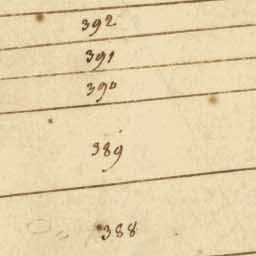 392
391
390
389
388